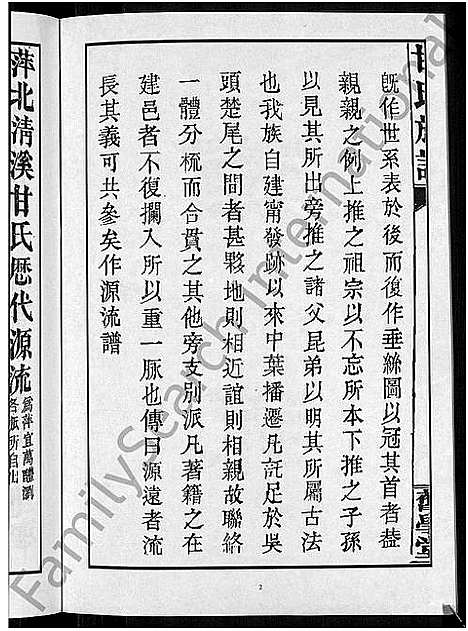 甘氏族譜
既作世系表於後而復作垂絲圖以冠其首者葢
親親之例上推之祖宗以不忘所本下推之子孫
以見其所出旁推之諸父昆弟以明其所屬古法
也我族自建甯發跡以來中葉播遷凡託足於吳
頭楚尾之間者甚夥地則相近誼則相親故聯絡
一體分梳而合貫之其他旁支別派凡著籍之在
建邑者不復攔入所以重一脈也傳曰源遠者流
長其義可共參矣作源流譜
2
萍北清溪甘氏歷代源流
為萍宜萬醴瀏
各派所自出
FamilySearch International